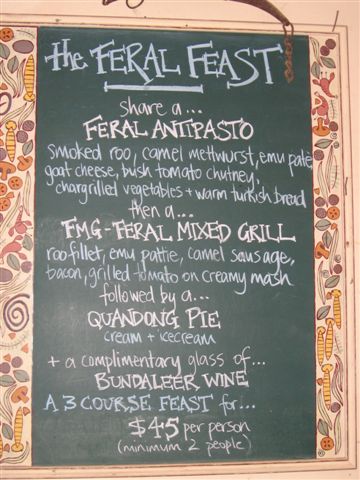 the FERAL FEAST
share a...
FERAL ANTIPASTO
smoked roo, camel mettwurst, emu pate
goat cheese, bush tomato chutney,
chargrilled vegetables + warm turkish bread
then a...
FMG-FERAL MIXED GRILL
roo fillet, emu pattie, camel sausage,
bacon, grilled tomato on creamy mash
followed by a...
QUANDONG PIE
cream + icecream
+ a complimentary glass of...
BUNDALEER WINE
A 3 COURSE FEAST for...
$45 per person
(minimum 2 people)